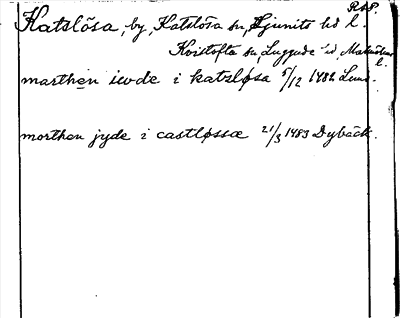 Katslösa, by, Katslösa sn, Ljunits hd l.
Kvistofta sn, Luggude hd, Malmöhus l.
marthen iwde i katsløsa 5/12 1482 Lund.
morthen jyde i castløssæ 21/3 1483 Dybäck.